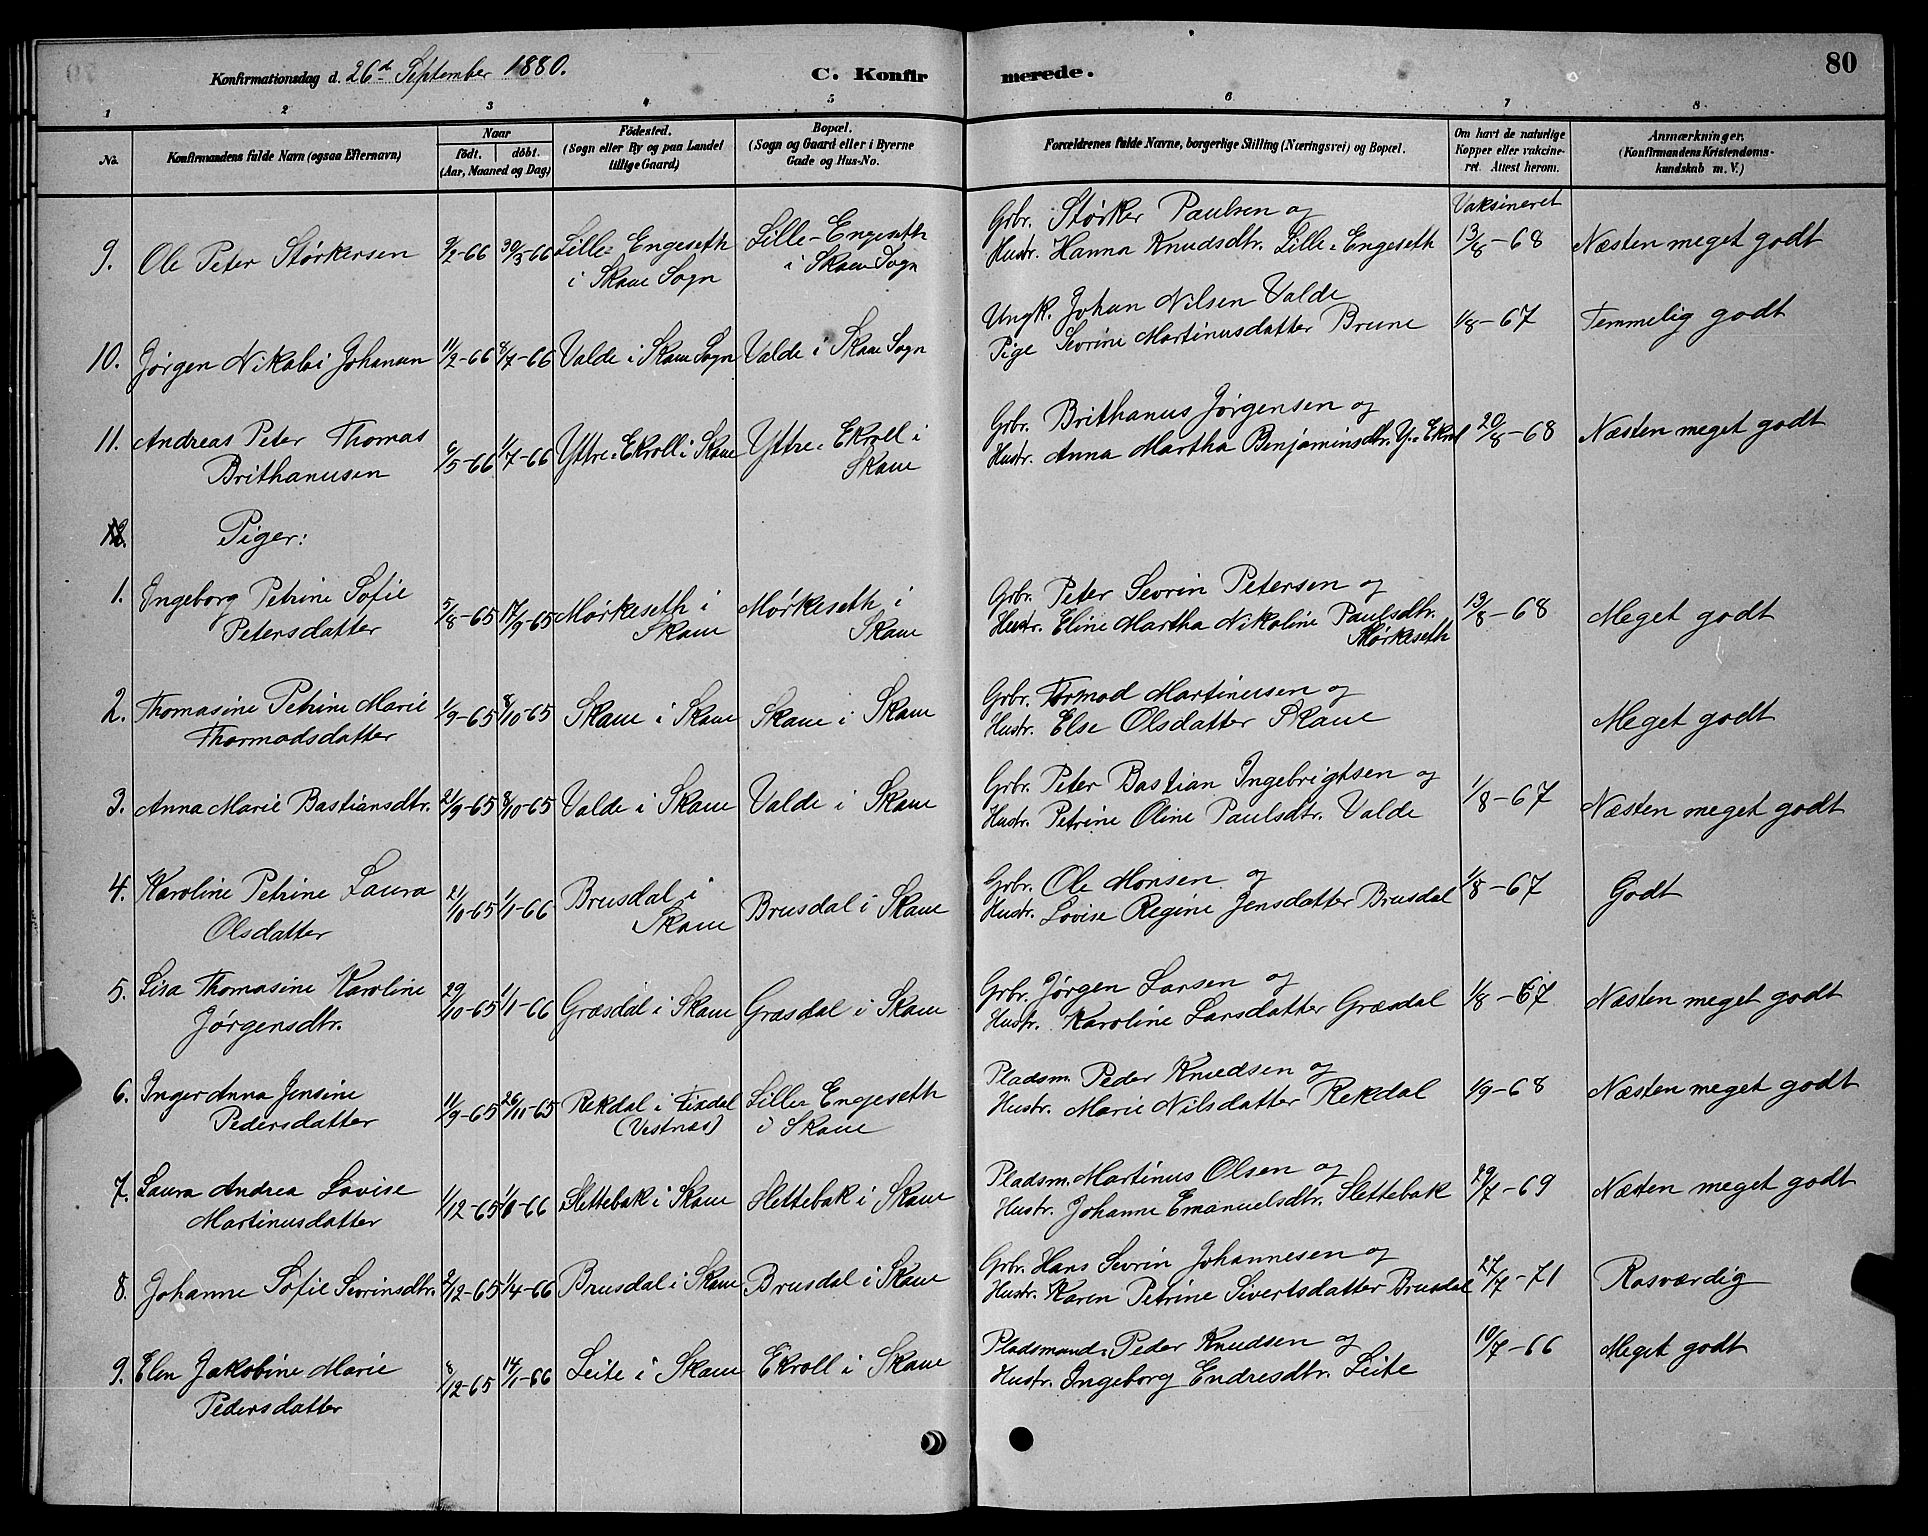 Konfirmationsdag d. 26d September 1880.
C. Konfirmerede.
80
1 2 3 4 5 6 7 8
No.
Konfirmandens fulde Navn (ogsaa Efternavn)
Naar
födt. döbt.
(Aar, Maaned og Dag)
Födested.
(Sogn eller By og paa Landet
tillige Gaard)
Bopæl.
(Sogn og Gaard eller i Byerne
Gade og Hus-No.
Forældrenes fulde Navne, borgerlige Stilling (Næringsvei) og Bopæl.
Om havt de naturlige
Kopper eller vakcine-
ret. Attest herom.
Anmærkninger.
(Konfirmandens Kristendoms-
kundskab m. V.)
Vaksineret
9. Ole Peter Størkersen 9/2-66 30/3-66 Lille-Engeseth i Skaue Sogn Lille-Engeseth i Skaue Sogn
Grbr. Størker Paulsen og
Hustr. Hanna Knudsdtr. Lille-Engeseth 13/8-68 Næsten meget godt
10. Jørgen Nikolai Johansen 11/2-66 8/7-66 Valde i Skaue Sogn Valde i Skaue Sogn
Ungk. Johan Nilsen Valde
Pige Sevrine Martinusdatter Brune 1/8-67 Temmelig godt
11. Andreas Peter Thomas
Brithanusen 6/5-66 1/7-66 Yttre-Ekroll i Skaue Yttre-Ekroll i Skaue
Grbr. Brithanus Jørgensen og
Hustr. Anna Martha Benjaminsdtr. Y.-Ekrol 20/8-68 Næsten meget godt
Piger:
1. Ingeborg Petrine Sofie
Petersdatter 5/8-65 17/9-65 Mørkeseth i Skaue Mørkeseth i Skaue
Grbr. Peter Sevrin Petersen og
Hustr. Eline Martha Nikoline Paulsdtr.
Mørkeseth 13/8-68 Meget godt
2. Thomasine Petrine Marie
Thormodsdatter 1/9-65 8/10-65 Skaue i Skaue Skaue i Skaue
Grbr. Tormod Martinusen og
Hustr. Else Olsdatter Skaue Meget godt
3. Anna Marie Bastiansdtr. 21/9-65 8/10-65 Valde i Skaue Valde i Skaue
Grbr. Peter Bastian Ingebrigtsen og
Hustr. Petrine Oline Paulsdtr. Valde 1/8-67 Næsten meget godt
4. Karoline Petrine Laura
Olsdatter 21/10-65 1/1-66 Brusdal i Skaue Brusdal i Skaue
Grbr. Ole Monsen og
Hustr. Lovise Regine Jensdatter Brusdal 1/8-67 Godt
5. Lisa Thomasine Karoline
Jørgensdtr. 29/10-65 1/1-66 Græsdal i Skaue Græsdal i Skaue
Grbr. Jørgen Larsen og
Hustr. Karoline Larsdatter Græsdal 1/8-67 Næsten meget godt
6. Inger Anna Jensine
Pedersdatter 11/9-65 26/11-65 Rekdal i Fixdal (Vestnæs) Lille-Engeseth i Skaue
Pladsm. Peder Knudsen og
Hustr. Marie Nilsdatter Rekdal 1/9-68 Næsten meget godt
7. Laura Andrea Lovise
Martinusdatter 1/12-65 -66 Slettebak i Skaue Slettebak i Skaue
Pladsm. Martinus Olsen og
Hustr. Johanne Emanuelsdtr. Slettebak 29/7-69 Næsten meget godt
8. Johanne Sofie Sevrinsdtr. 9/12-65 1/4-66 Brusdal i Skaue Brusdal i Skaue
Grbr. Hans Sevrin Johannesen og
Hustr. Karen Petrine Sivertsdatter Brusdal 27/7-71 Rosværdig
9. Elen Jakobine Marie
Pedersdatter 8/12-65 14/1-66 Leite i Skaue Ekroll i Skaue
Pladsmand: Peder Knudsen og
Hustr. Ingeborg Endresdtr. Leite 10/7-66 Meget godt